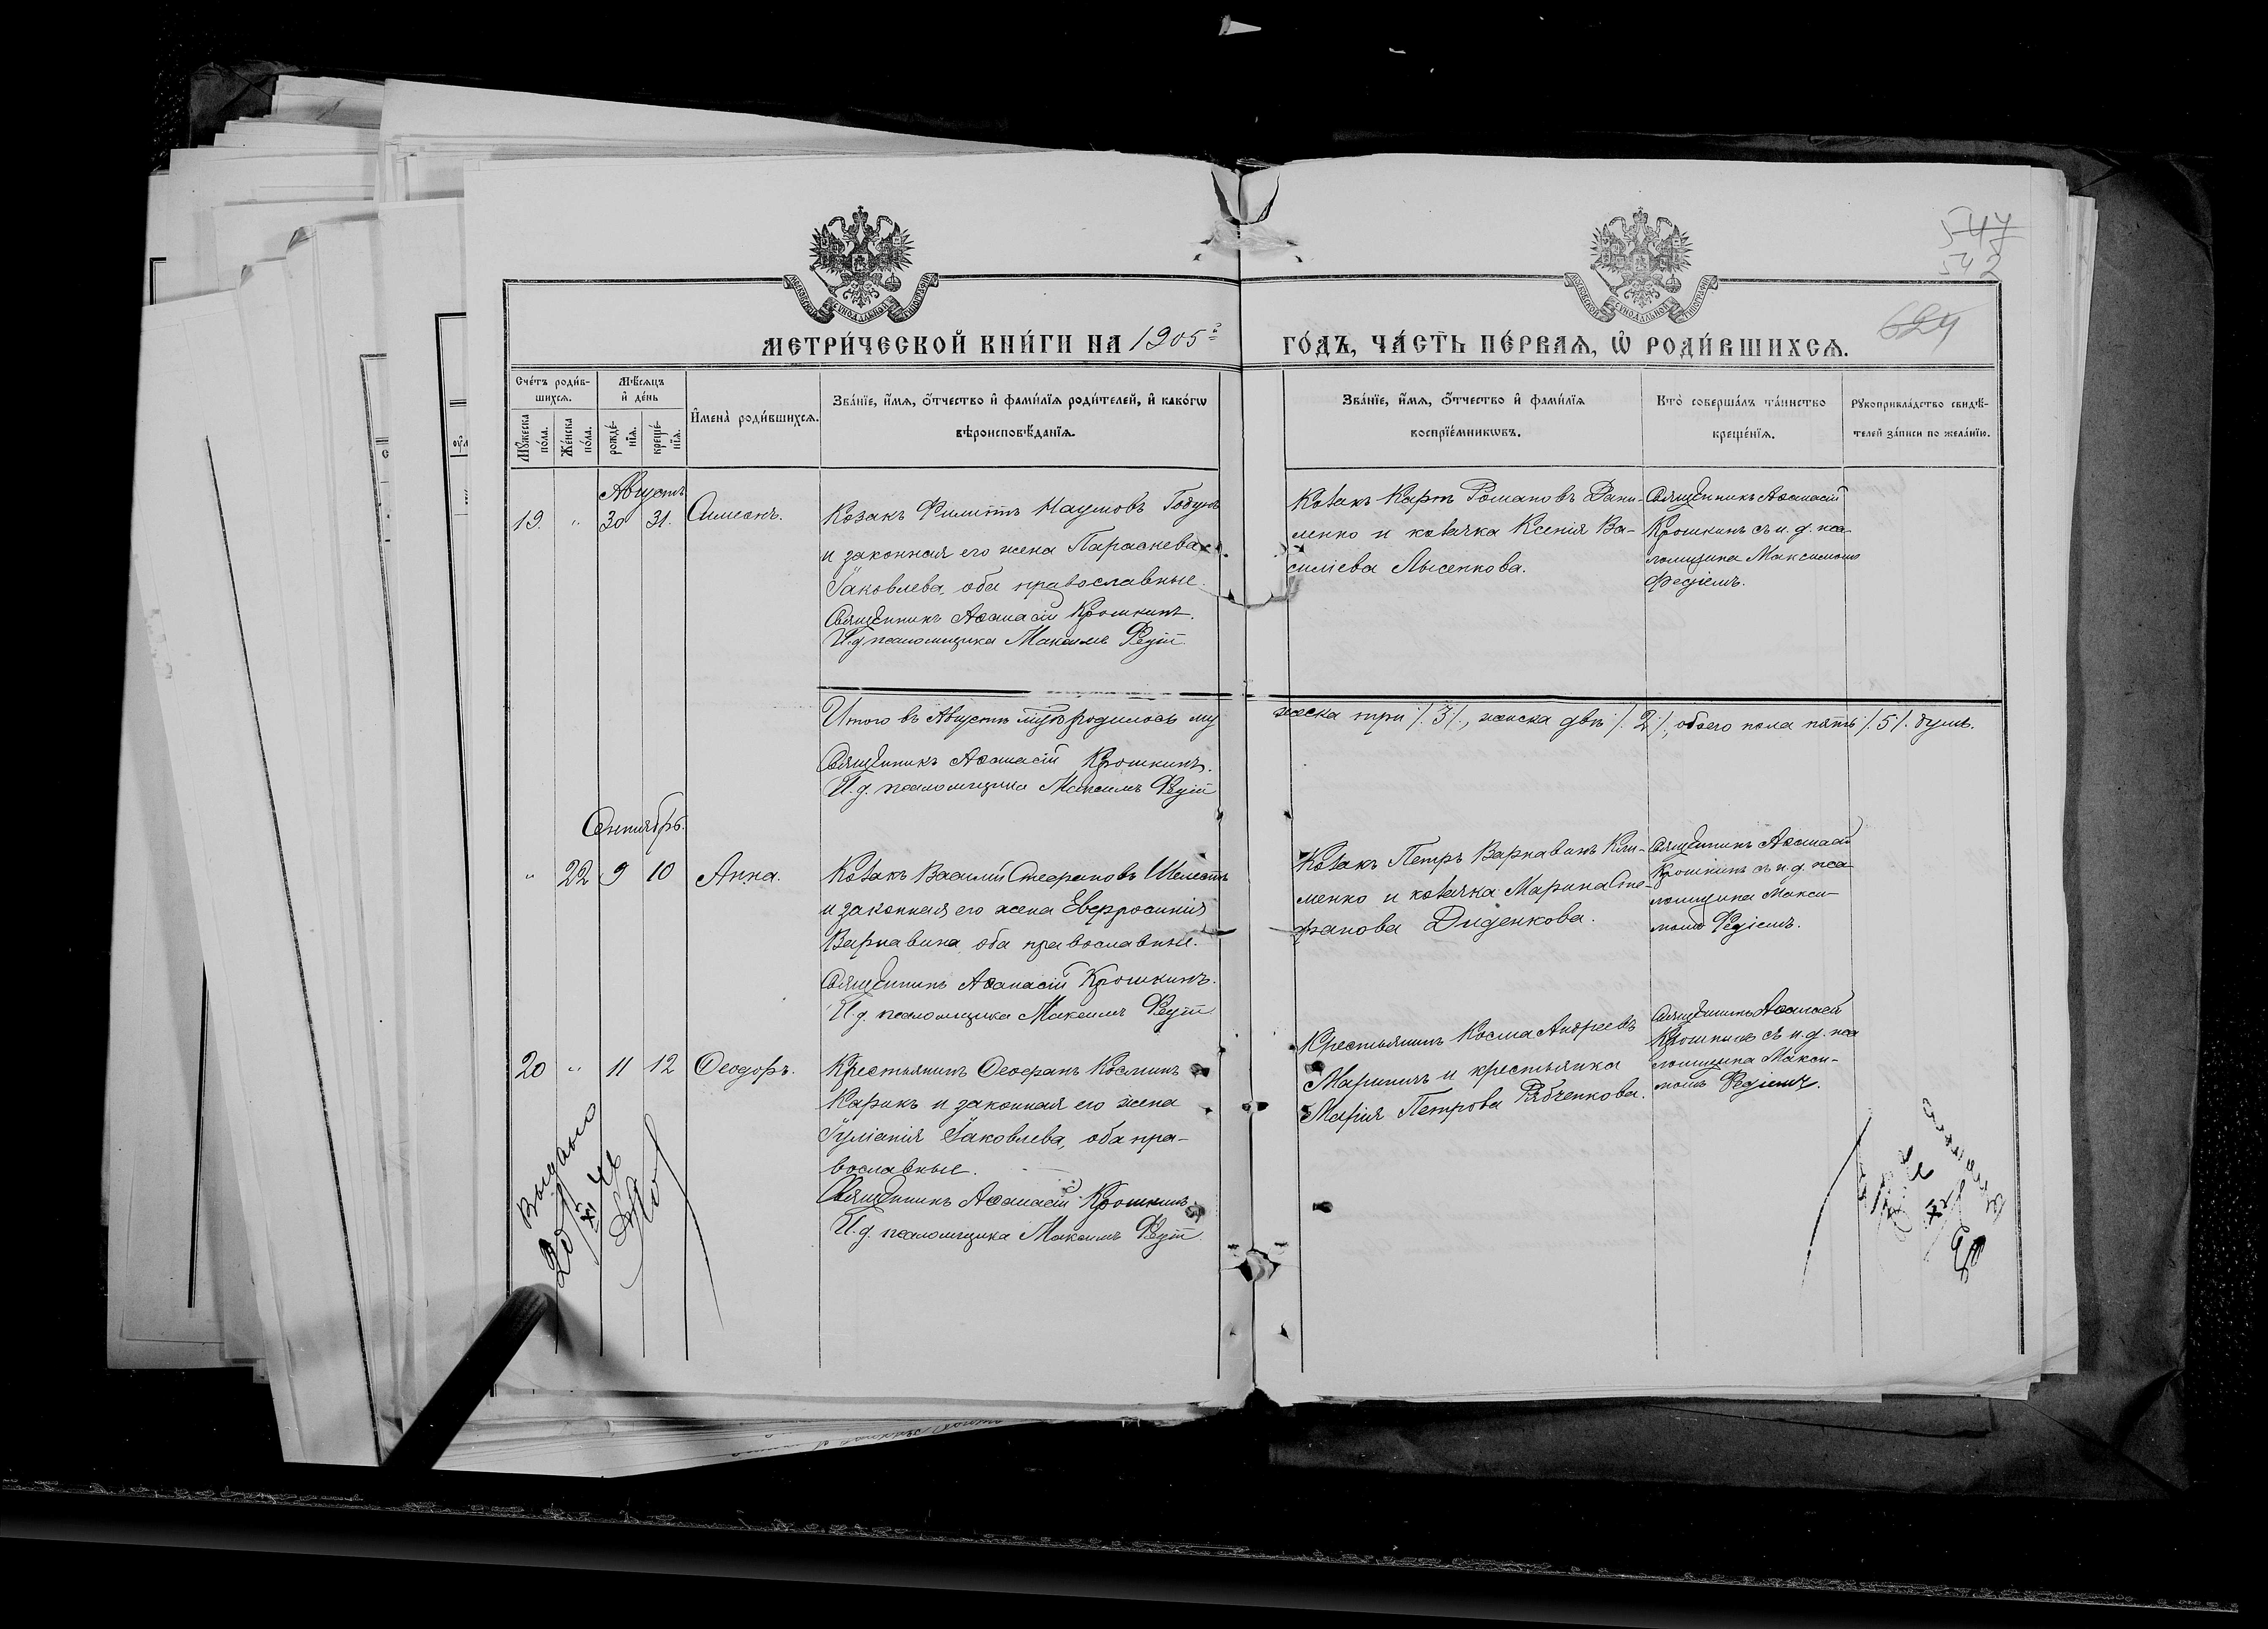 544
542
624
МОСКОВСКОЙ СѴНОДАЛЬНОЙ ТИПОГРАФІИ
МОСКОВСКОЙ СѴНОДАЛЬНОЙ ТИПОГРАФІИ
МЕТРИ́ЧЕСКОЙ КНИ́ГИ НА 1905й ГО́ДЪ, ЧА́СТЬ ПЕ́РВАѦ, Ѡ҆ РОДИ́ВШИХСѦ.
Сче́тъ роди́в-
шихсѧ.
Мꙋ́жеска
по́ла.
Же́нска
по́ла.
Мѣ́сѧцъ
и҆ де́нь
рожде́-
нїѧ.
креще́-
нїѧ.
И҆мена̀ роди́вшихсѧ.
Зва́нїе, и҆́мѧ, ѻ҆́тчество и҆ фами́лїѧ роди́телей, и҆ како́гѡ
вѣроисповѣ́данїѧ.
Зва́нїе, и҆́мѧ, ѻ҆́тчество и҆ фами́лїѧ
воспрїе́мникѡвъ.
Кто̀ соверша́лъ та́инство
креще́нїѧ.
Рꙋкоприкла́дство свидѣ́-
телей за́писи по жела́нїю.
Августъ
19. " 30 31. Симеонъ.
Козакъ Филиппъ Наумовъ Годунъ
и законная его жена Параскева
Іаковлева, оба православные.
Священникъ Аѳанасій Крошкинъ.
И. д. псаломщика Максимъ
Козакъ Карпъ Романовъ Дани-
ленко и козачка Ксенія Ва-
силіева Лысенкова.
Священникъ Аѳанасій
Крошкинъ съ и. д. пса
ломщика Максимомъ
Итого въ Августѣ родилось му
жеска три /. 3 /., женска двѣ /. 2 /., обоего пола пять /. 5 /. душъ.
Священникъ Аѳанасій Крошкинъ.
И. д. псаломщика Максимъ
Сентябрь.
" 22 9 10 Анна.
Козакъ Василій Стефановъ Шелестъ
и законная его жена Евфросинія
Варнавина, оба православные.
Священникъ Аѳанасій Крошкинъ.
И. д. псаломщика Максимъ
Козакъ Петръ Варнавинъ Кли-
менко и козачка Марина Сте-
фанова Диденкова.
Священникъ Аѳанасій
Крошкинъ съ и. д. пса
ломщика Макси-
момъ
20 " 11 12 Ѳеодоръ.
Крестьянинъ Ѳеофанъ Косминъ
Карикъ и законная его жена
Іуліанія Іаковлева, оба пра-
вославные.
Священникъ Аѳанасій Крошкинъ
И. д. псаломщика Максимъ
Крестьянинъ Косма Андреевъ
и крестьянка
Марія Петрова Рябченкова.
Священникъ Аѳанасій
Крошкинъ съ и. д. пса
ломщика Макси-
момъ
Выдано